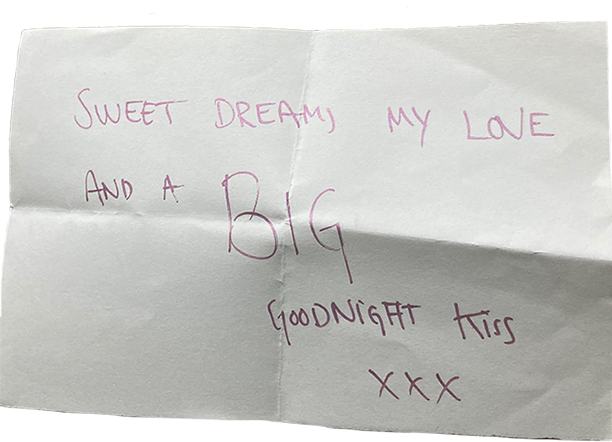 SWEET DREAMS MY LOVE
AND A BIG
GOODNIGHT KISS
XXX